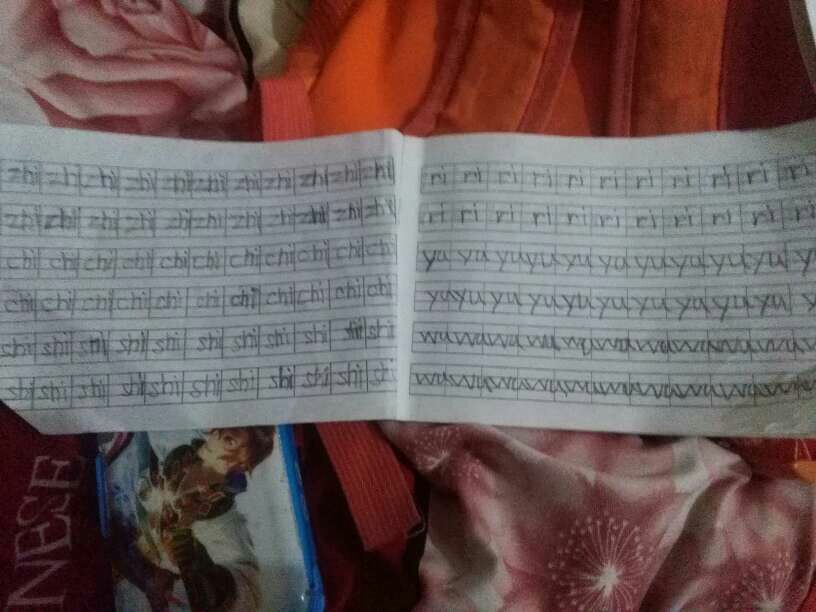 zhi zhi zhi zhi zhi zhi zhi zhi zhi zhi zhi
zhi zhi zhi zhi zhi zhi zhi zhi zhi zhi zhi
chi chi chi chi chi chi chi chi chi chi chi
chi chi chi chi chi chi chi chi chi chi chi
shi shi shi shi shi shi shi shi shi shi shi
shi shi shi shi shi shi shi shi shi shi shi
ri ri ri ri ri ri ri ri ri ri ri
ri ri ri ri ri ri ri ri ri ri ri
yu yu yu yu yu yu yu yu yu yu y
yu yu yu yu yu yu yu yu yu yu y
wu wu wu wu wu wu wu wu wu wu wu
wu wu wu wu wu wu wu wu wu wu wu
NESE